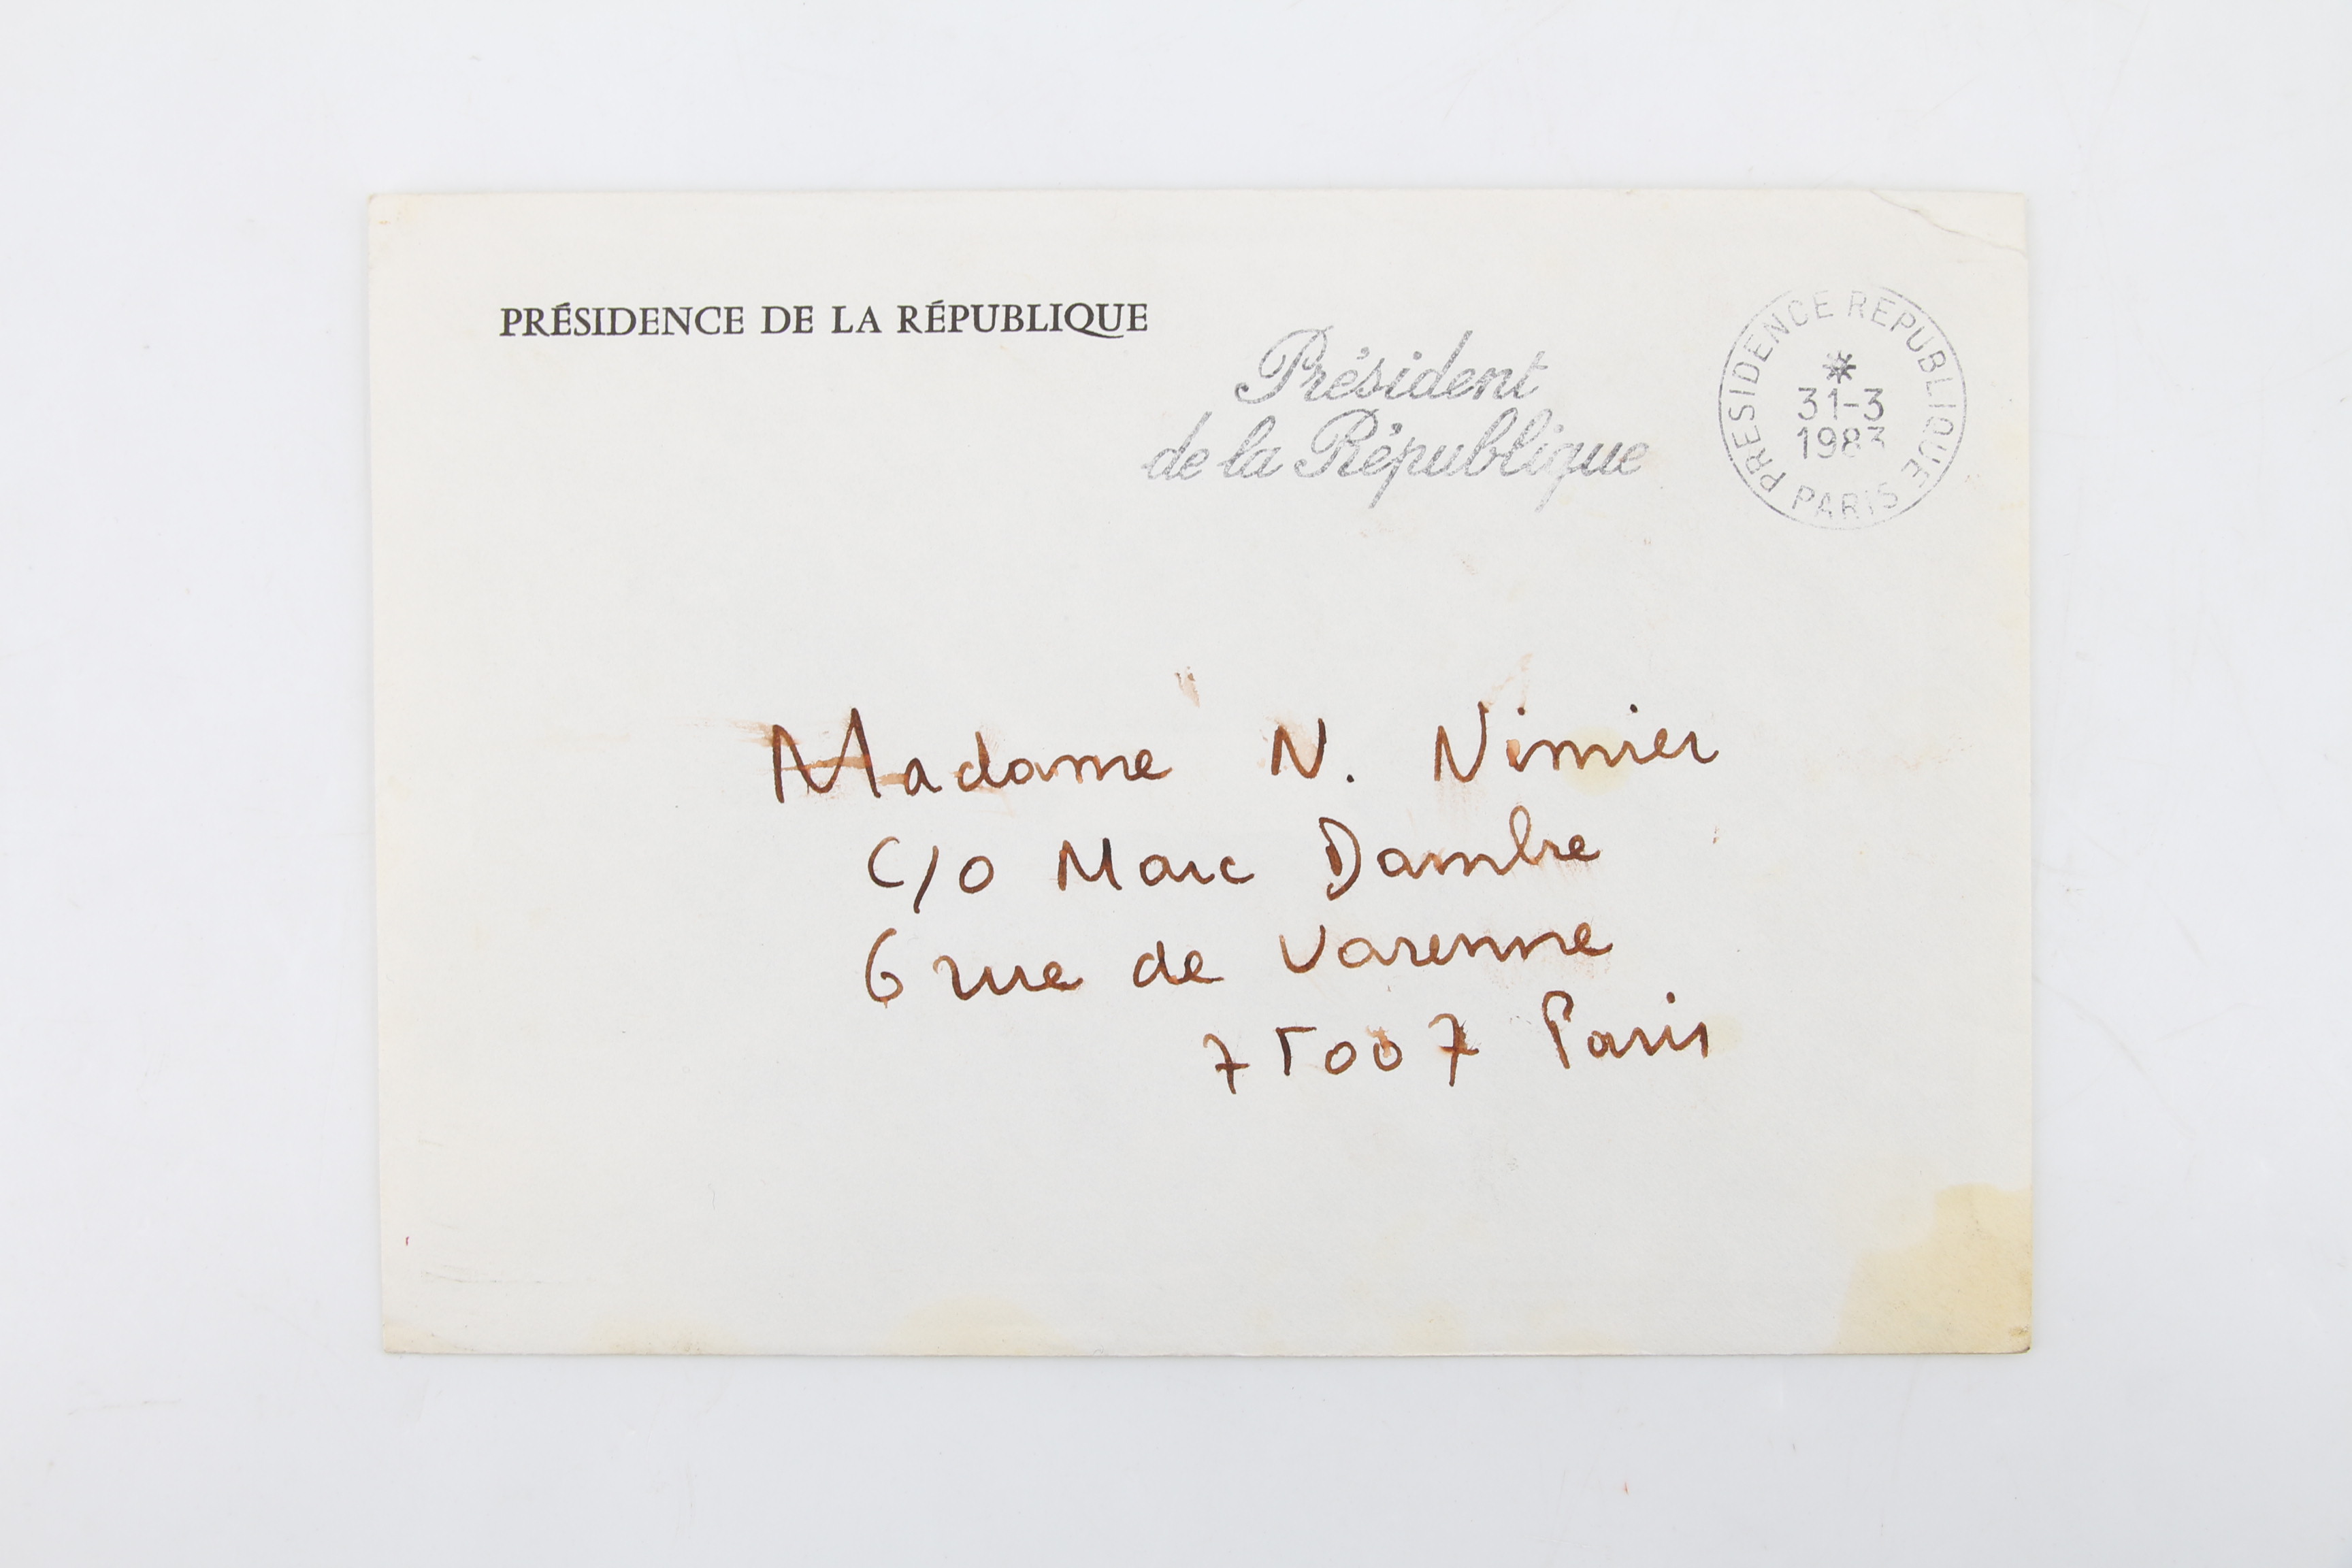 PRÉSIDENCE DE LA RÉPUBLIQUE
Président
de la République
PRESIDENCE REPUBLIQUE
31-3
1983
PARIS
Madame N. Nimier
C/o Marc Dambre
6 rue de Varenne
75007 Paris